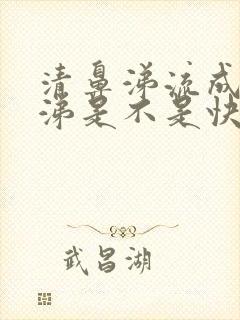 清鼻涕流成
涕是不是快
武昌湖